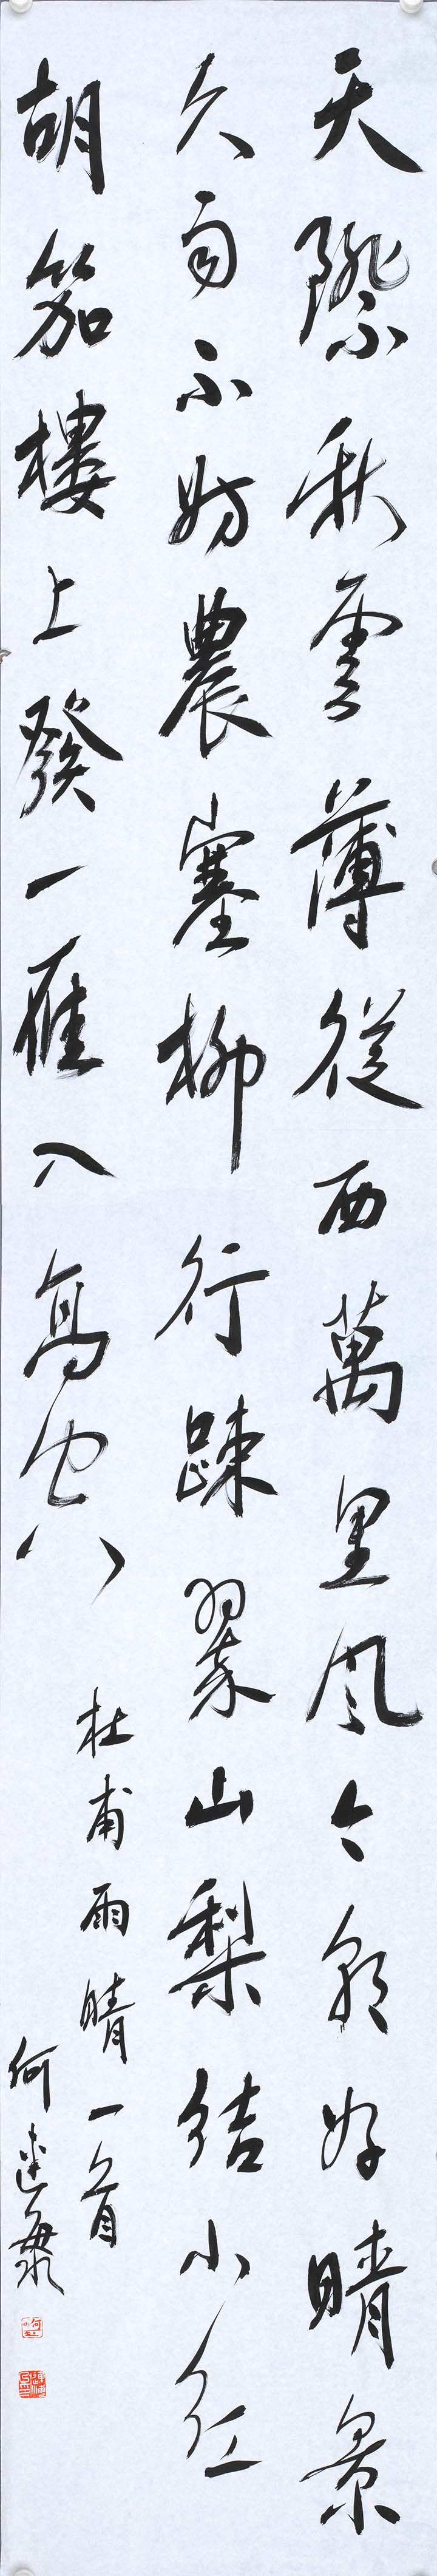 天際秋雲薄從西萬里風今朝好晴景
久雨不妨農塞柳行疎翠山梨結小紅
胡笳樓上發一雁入高空
杜甫雨晴一首
何建